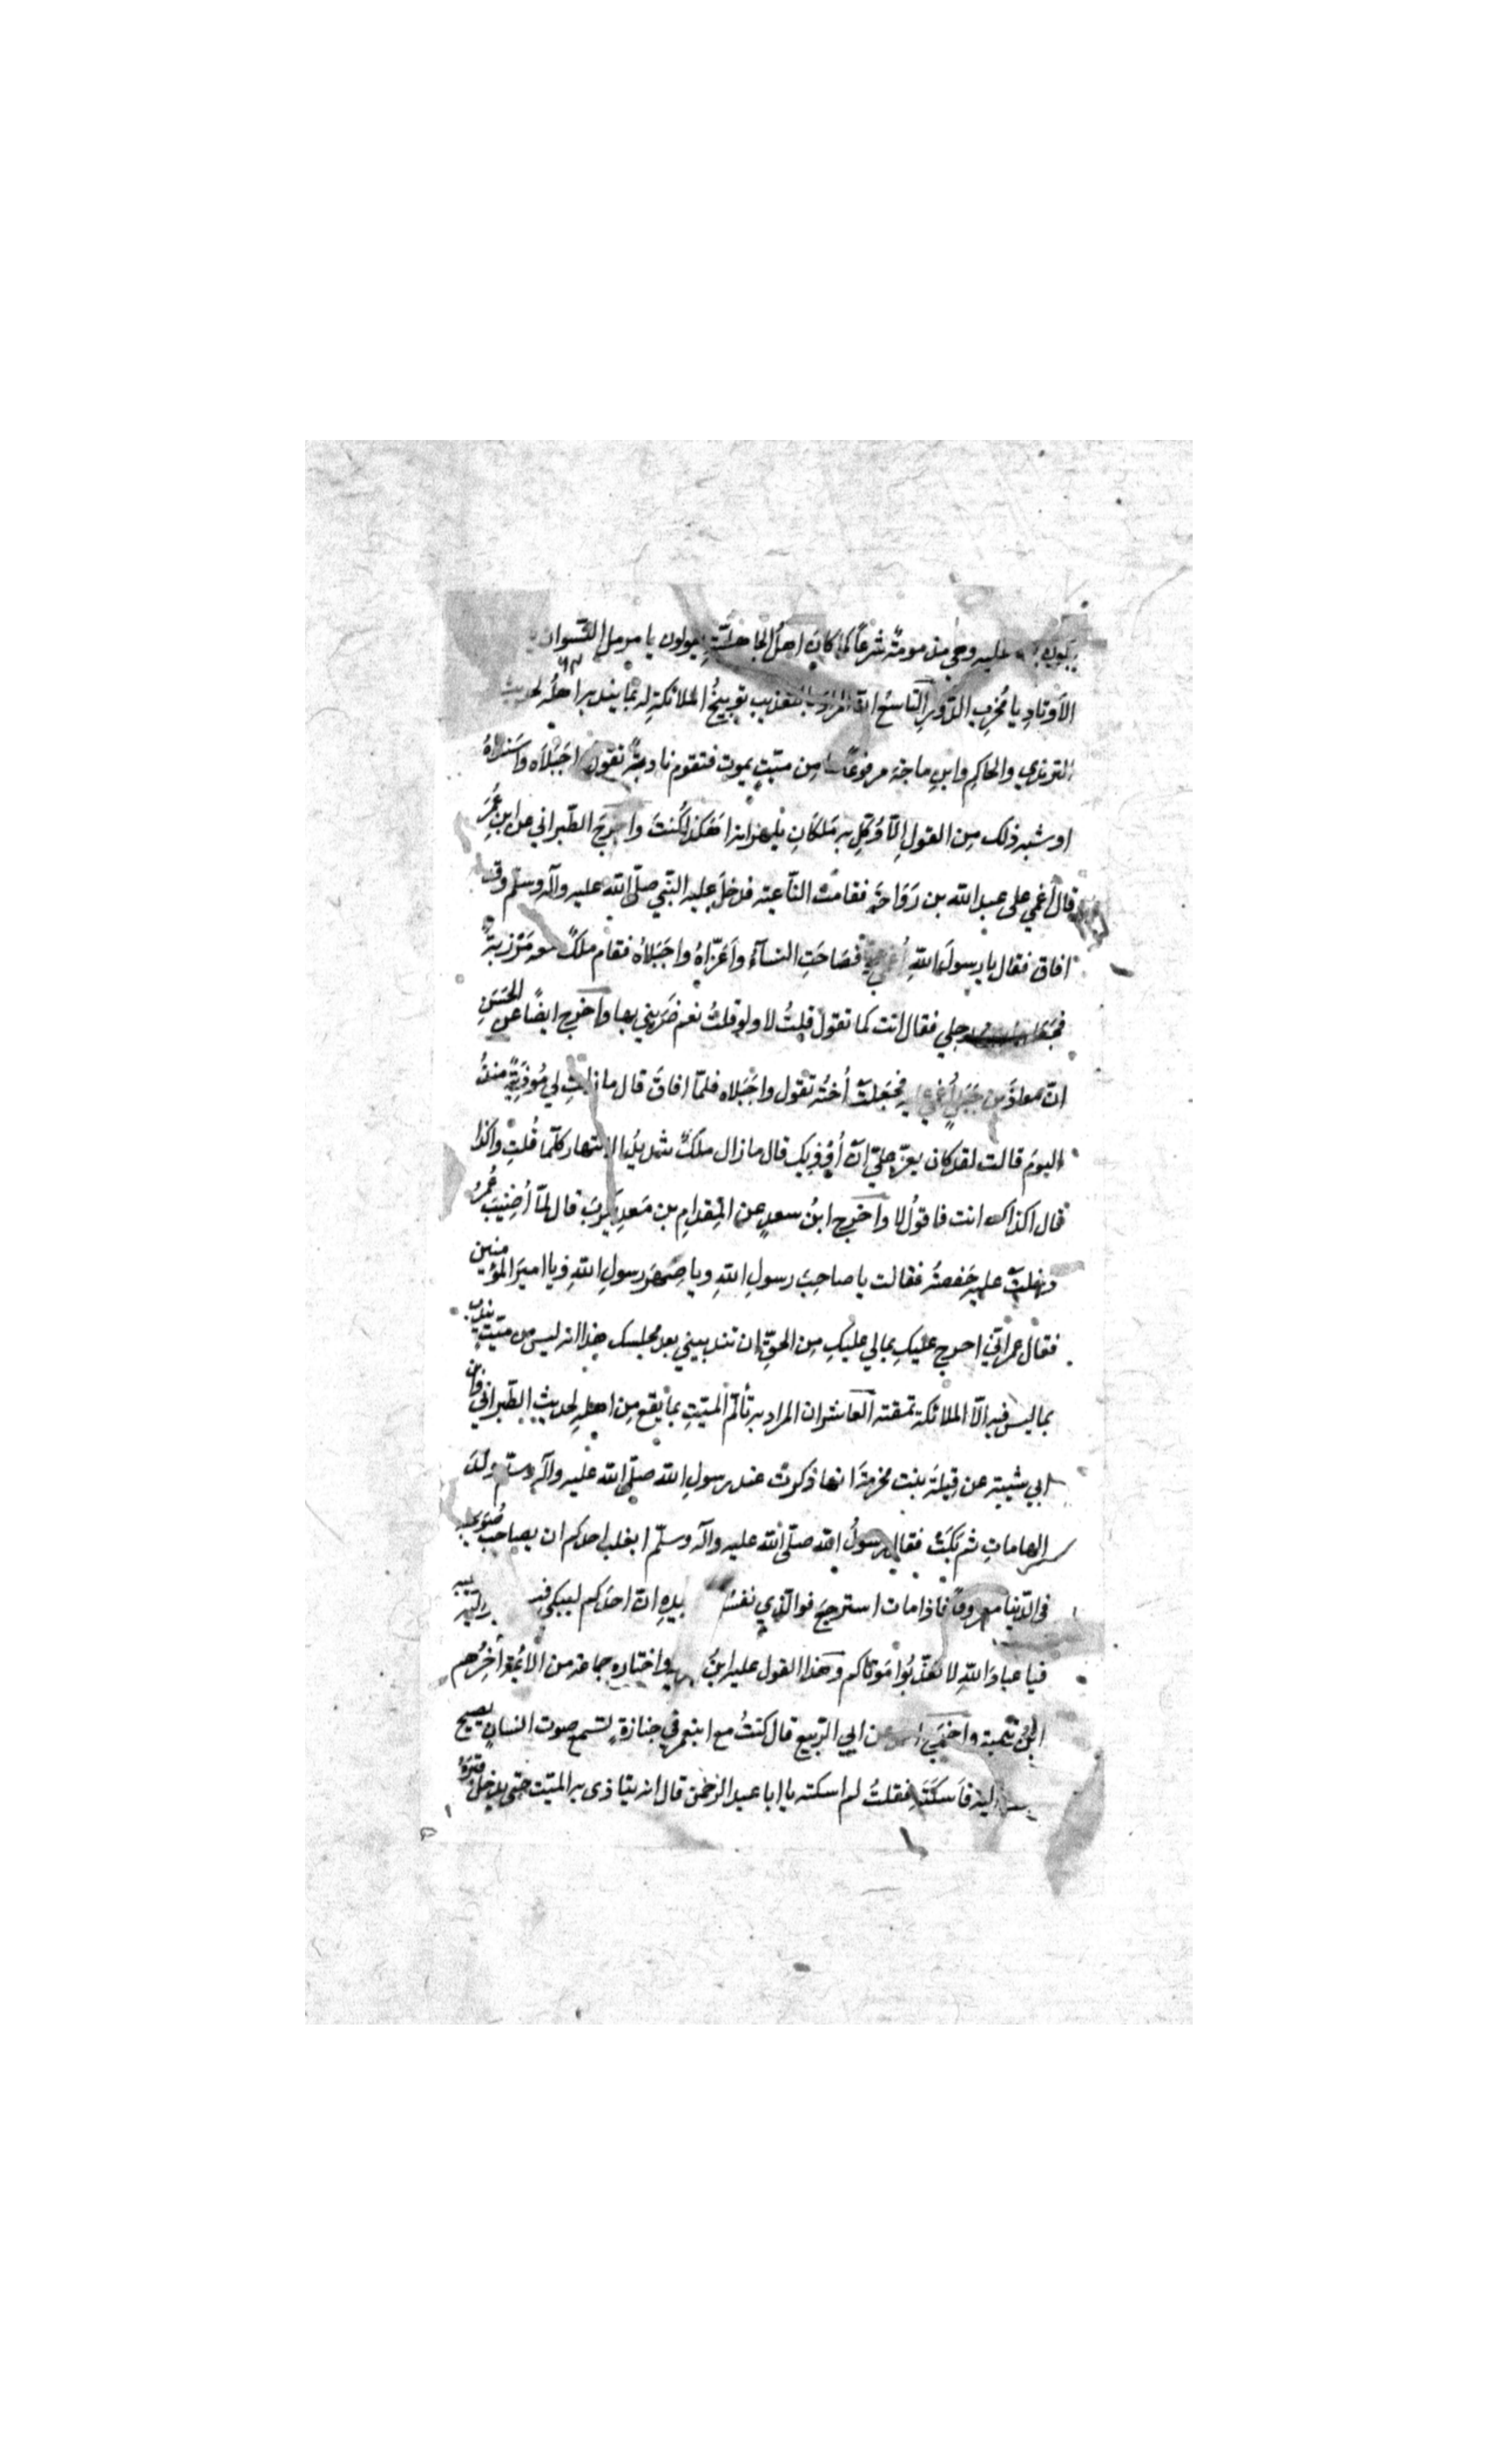 عليه وهي مذمومة شرعاً كما كان اهل الجاهليّة يقولون يا مرمل النّسوان
الأوتاد يا مُخرِب الدّور التاسع انّ المراد بالتعذيب توبيخُ الملائكةِ له بما يندبه اهلُه لحديث
الترمذي والحاكِم وابن ماجة مرفوعاً ما مِن ميّتٍ يموت فتقوم نادبةٌ تقول واجَبَلَاه واسَنداهُ
او شبه ذلك مِن القولِ اِلّا وُكّلِ به مَلَكانِ يلهزانه اَهَكذا كُنتَ واخرجَ الطّبراني عن ابن عُمَرَ
قال اُغمي على عبد الله بن رَوَاحَةَ فقامت النّاعية فدخلَ عليه النّبي صلّى الله عليه وآله وسلّم وقد
افاق فقال يا رسولَ اللهِ اُغمي عليّ فصَاحَتِ النسآءُ واَعَزّاهُ واجَبَلاهُ فقام ملَكٌ معه مَرْزبةٌ
فجعلها بين رجلي فقال انت كما تقول قلتُ لا ولو قلتُ نعم ضَرَبني بها واَخرج ايضًا عن الحَسَنِ
انّ معاذَ بن جَبَلٍ اُغمي عليه فجَعَلتْ اُختُه تقول واجَبَلاه فلمّا افاقَ قال ما زلتِ لي مُوذيةً منذُ
اليومَ قالت لقد كان يعزّ عليّ انْ اُوذِيك قال ما زال ملَكٌ شديدُ الانتهار كلّما قُلتِ واكذا
قال اكذاك انت فاقولُ لا واَخرج ابنُ سعدٍ عن المِقدامِ بن مَعدِيكَرِبَ قال لمّا اُصِيبَ عُمَرُ
دخلتْ عليه حَفصةُ فقالت يا صاحِبَ رسولِ اللهِ ويا صِهرَ رسولِ اللهِ ويا اميرَ المؤمنين
فقال عمر انّي احرج عليكِ بمالي عليكِ مِن الحقِّ ان تندبيني بعد مجلسك هذا انه ليس من ميّتٍ يندب
بما ليس فيه الّا الملائكة تمقته العاشر ان المراد به تألّم الميّتِ بما يقع مِن اهلِه لحديثِ الطّبراني وابن
ابي شيبة عن قيلة بنت مخرمة انها ذكرت عند رسولِ الله صلّى الله عليه وآله وسلّم ولدً
لها مات ثم بَكَتْ فقال رسولُ الله صلّى الله عليه وآله وسلّم ايغلب احدكم ان يصاحب صُوَيحبه
في الدّنيا معروفًا فاذا مات استرجعَ فوالّذي نفسُ بيدِه انّ احدَكم ليبكي
فيا عبادَ اللهِ لا تعذّبُوا مَوتاكم وهذا القول عليه ابنُ واختاره جماعة من الأئمّة واَخِرُهم
ابنُ تيمية واخرج عن ابي الرّبيع قال كنتُ مع ابن عمر في جنازةٍ فسمع صوت انسانٍ يصيح
اليه فاَسكَتَه فقلتُ لم اسكته يا ابا عبد الرّحمن قال انه يتاذى به الميّت حتى يدخلَ قبرَهُ